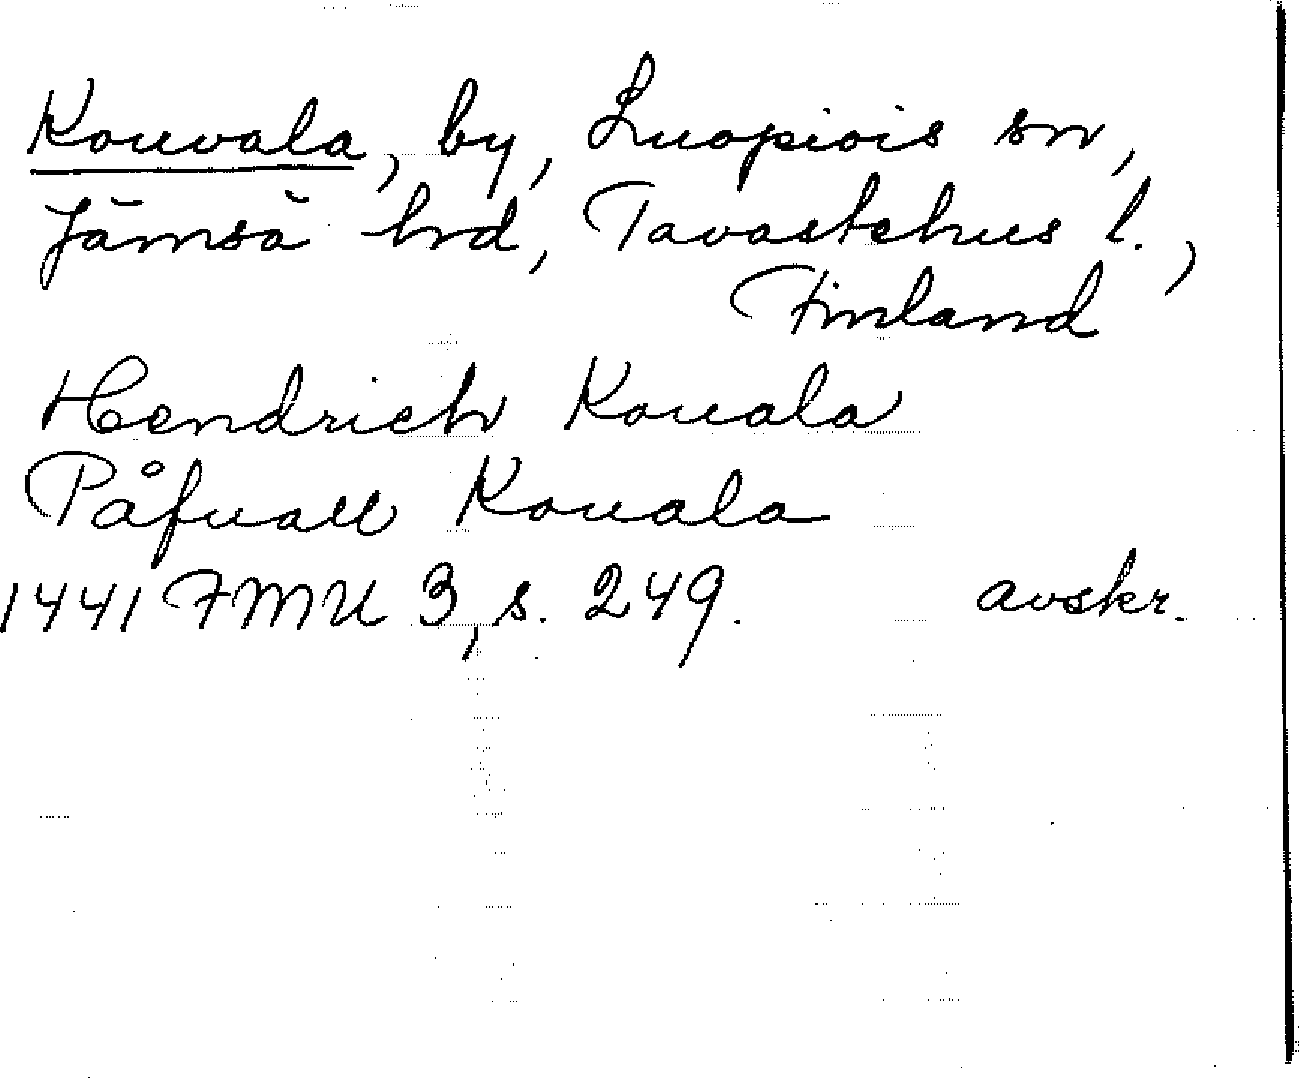 Kouvala, by, Luopiois sn,
Jämsä hrd, Tavastehus l.,
Finland
Hendrich Kouala
Påfuall Kouala
1441 FMU 3, s. 249. avskr.